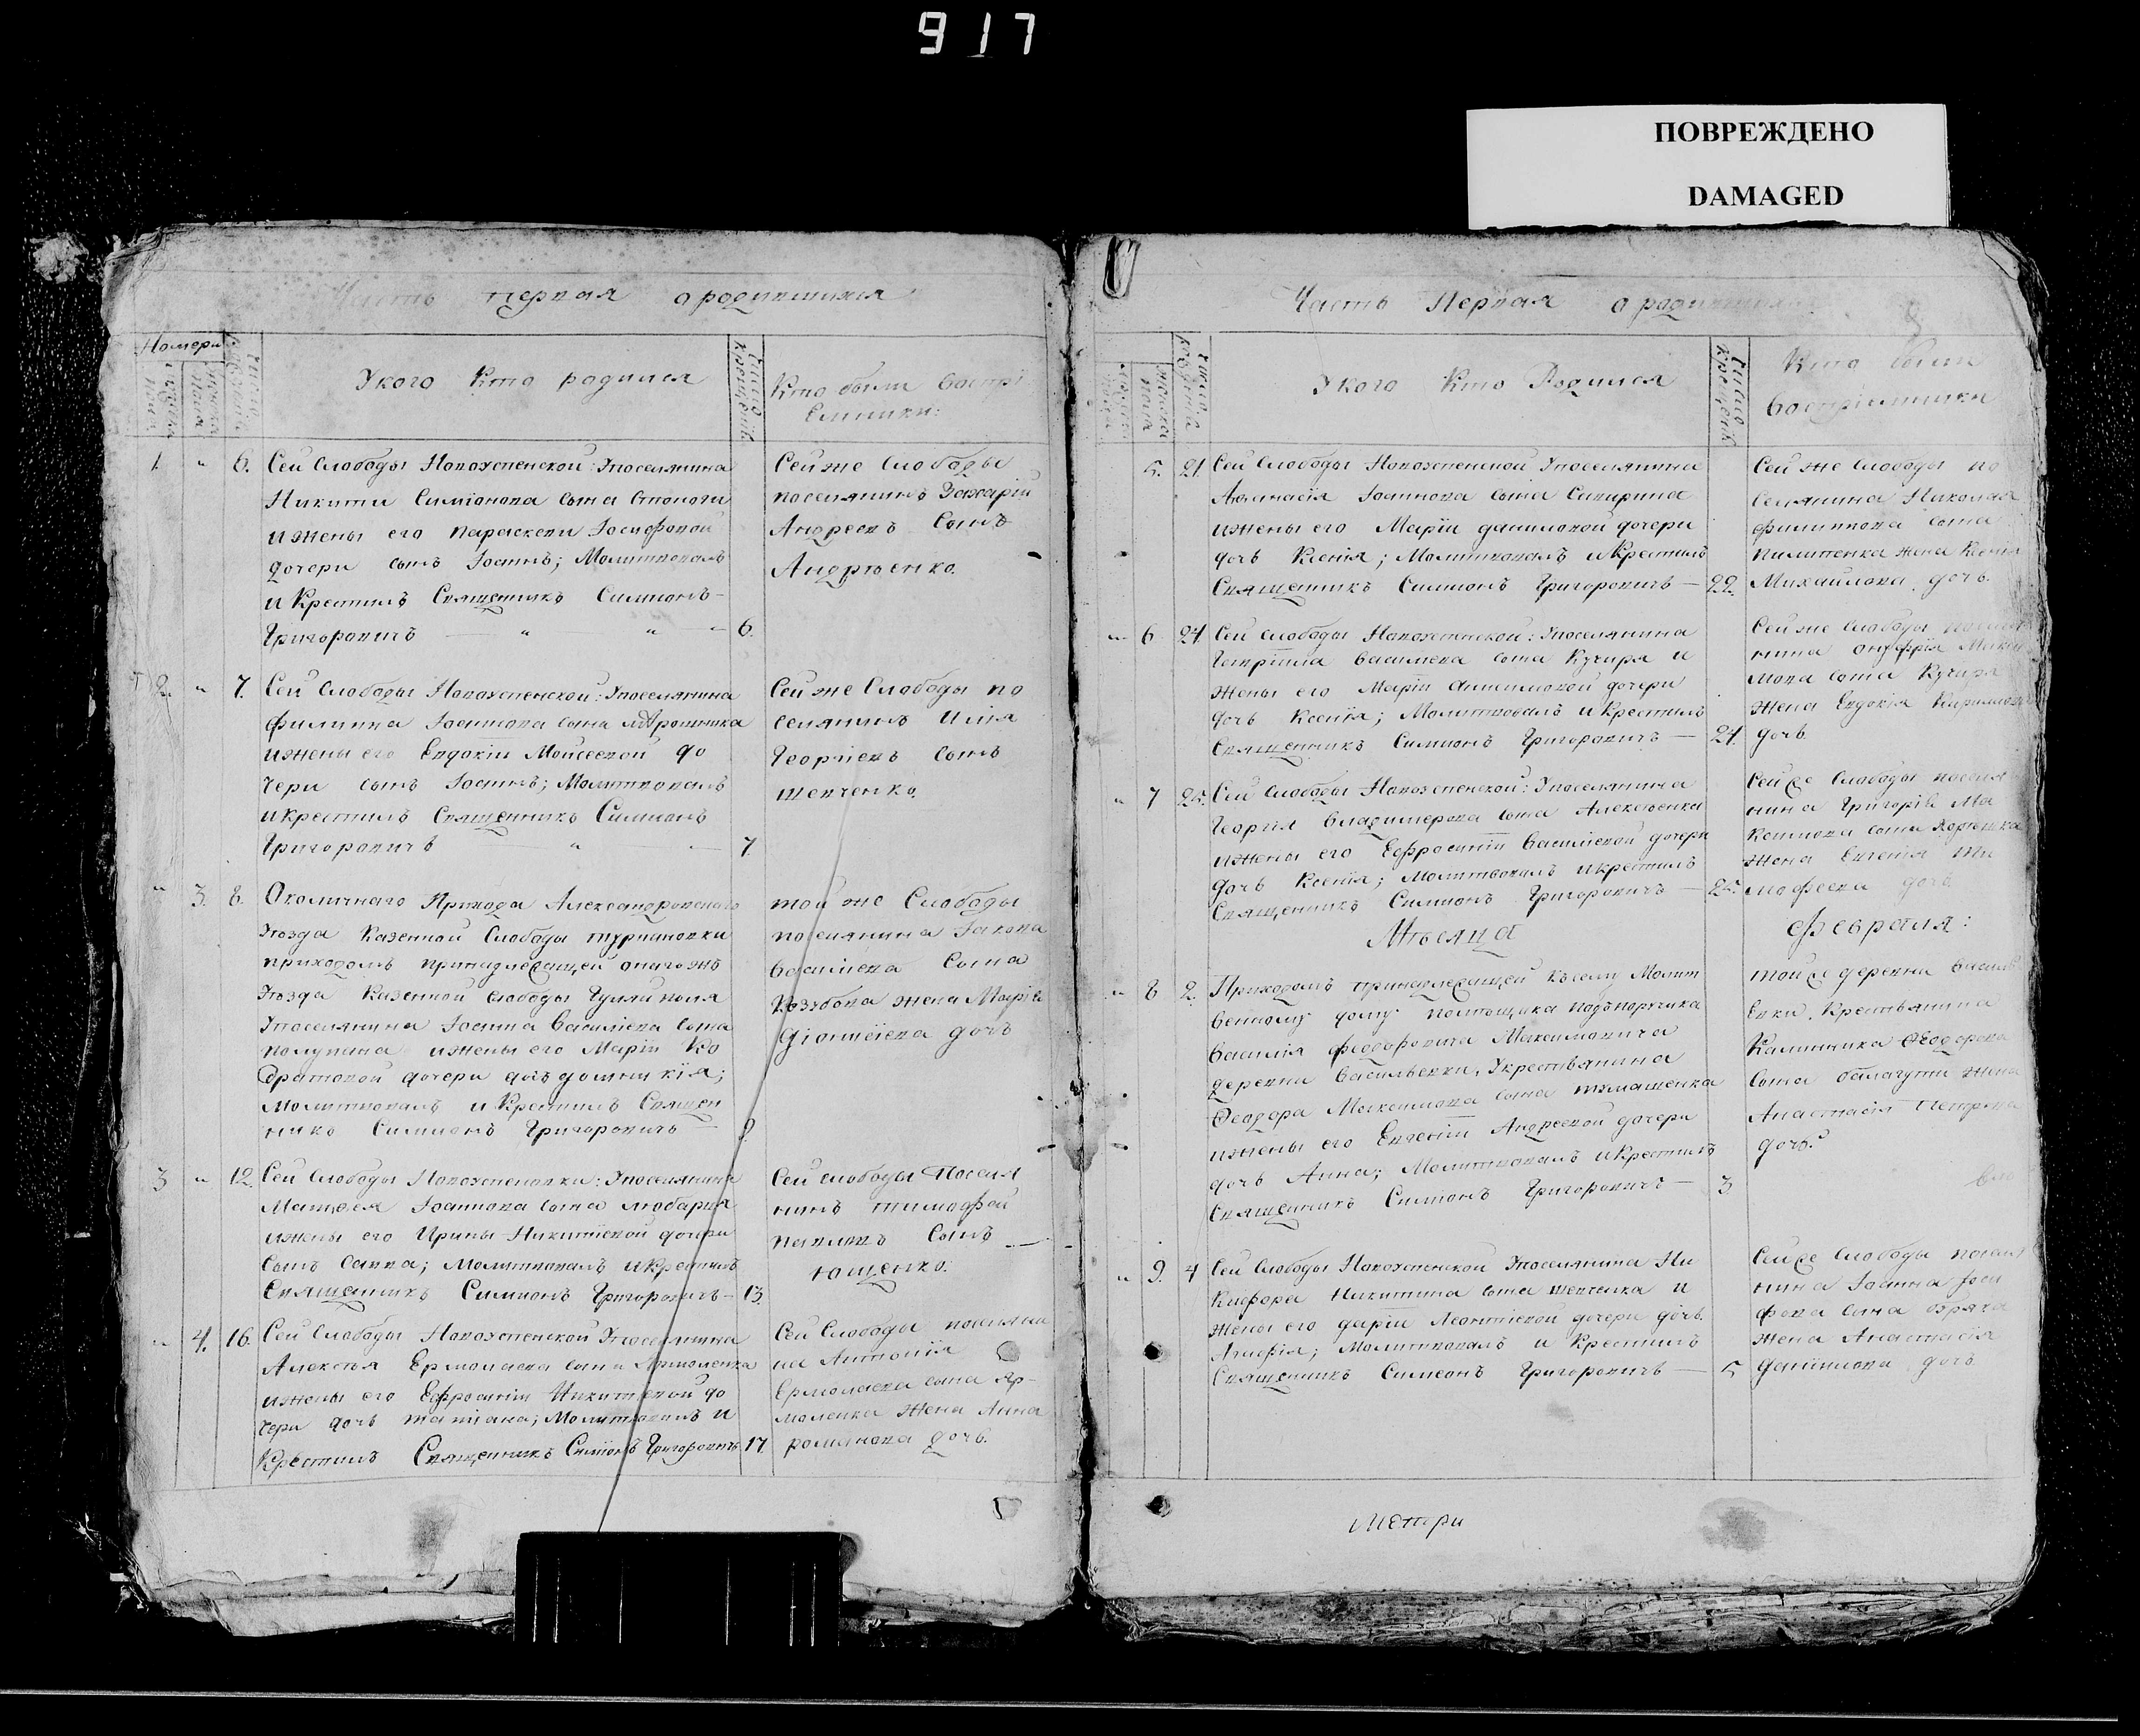 917
ПОВРЕЖДЕНО
DAMAGED
Часть первая о родившихся
Номери
У кого Кто родился
Кто были Воспрі
Емники:
1. " 6. Сей Слободы Новоуспенской: У поселянина
Никити Симіонова сына
и жены его Параскеви Іосифовой
дочери сынъ Іоаннъ; Молитвовалъ
и Крестилъ Священникъ Симионъ
Григоровичъ " " 6.
Сей же Слободы
поселянинъ Захарій
Андреевъ Сынъ
Андрѣенко.
2. " 7. Сей Слободы Новоуспенской: У поселянина
Филиппа Іоаннова сына
и жены его Евдокіи Мойсеевой до
чери сынъ Іоаннъ; Молитвовалъ
и крестилъ Священникъ Симионъ
Григоровичъ " 7.
Сей же Слободы по
селянинъ Илія
Георгіевъ Сынъ
шевченко.
" 3. 8. Околичнаго Прихода Александровскаго
Уѣзда Казенной Слободы турчановки
приходомъ принадлежащей онагожъ
Уѣзда Казенной Слободы Гуляйполя
У поселянина Іоанна Василіева сына
полупана и жены его Маріи Ко
дратовой дочери дочь домникія;
Молитвовалъ и Крестилъ Священ
никъ Симионъ Григоровичъ 8.
той же Слободы
поселянина Іакова
Василіева Сына
Козубова жена Марія
Діонисіева дочь
3 " 12. Сей Слободы Новоуспеновки: У поселянина
Матфея Іоаннова сына любарця
и жены его Ирины Никитиевой дочери
сынъ Савва; Молитвовалъ и Крестилъ
Священникъ Симионъ Григоровичъ 13.
Сей слободы Поселя
нинъ тимофей
Павловъ Сынъ
ющенко.
" 4. 16. Сей Слободы Новоуспенской У поселянина
Алексѣя Ермолаева сына Ярмоленка
и жены его Ефросиніи Никитиевой до
чери дочь татіана; Молитвовалъ и
Крестилъ Священникъ Симіонъ Григоровичъ 17.
Сей Слободы поселяни
на Антонія
Ермолаева сына Яр-
моленка жена Анна
романова дочь.
Часть Первая о родившихся
У кого Кто Родился
Кто были
воспріемники
5. 21. Сей Слободы Новоуспенской У поселянина
Афанасія Іоаннова сына
и жены его Маріи даниловой дочери
дочь Ксенія; Молитвовалъ и Крестилъ
Священникъ Симионъ Григоровичъ — 22.
Сей же Слободы по
селянина Николая
филиппова сына
пилипенка жена Ксенія
Михайлова дочь.
" 6 24 Сей слободы Новоуспенской: У поселянина
Гавріила Василиева сына Кучера и
жены его Маріи дочери
дочь Ксенія; Молитвовалъ и Крестилъ
Священникъ Симионъ Григоровичъ — 24.
Сей же Слободы поселя
нина онуфрія
сына Кучера
жена Евдокія Кирилова
дочь
" 7 25. Сей Слободы Новоуспенской: У поселянина
Георгія Владимерова сына Алексѣенка
и жены его Ефросиніи Василіевой дочери
дочь Ксенія; Молитвовалъ и крестилъ
Священникъ Симионъ Григоровичъ — 25.
Сей же Слободы поселя
нина Григорія Ма
ксимова сына
жена Евгенія Ти
мофеева дочь
Мѣсяца
Февраля:
" 8 2. Приходомъ принадлежащей къ сему Молит
венному дому помѣщика подъпоручика
Василія Феодоровича Максимовича
деревни Васильевки, У крестьянина
Феодора Максимова сына тимашенка
и жены его Евгеніи Андреевой дочери
дочь Анна; Молитвовалъ и Крестилъ
Священникъ Симионъ Григоровичъ — 3.
той же деревни Василь
евки, Крестьянина
Калиника Феодорова
сына жена
Анастасія Петрова
дочь.
" 9. 4 Сей Слободы Новоуспенской У поселянина Ни
кифора Никитина сына шевченка и
жены его даріи Леонтіевой дочери дочь
Агафія; Молитвовалъ и Крестилъ
Священникъ Симеонъ Григоровичъ — 5
Сей же Слободы поселя
нина Іоанна Іоси
фова сына
жена Анастасія
Даніилова дочь